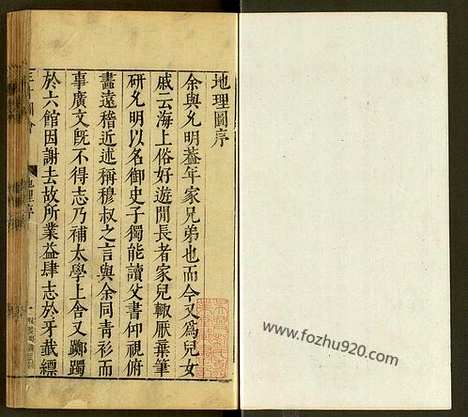 地理圖序
余與允明蓋年家兄弟也而今又為兒女
戚云海上俗好遊閒長者家兒輙厭棄筆
研允明以名御史子獨能讀父書仰視俯
畫遠稽近述稱穆叔之言與余同青衫而
事廣文既不得志乃補太學上舍又躑躅
於六館因謝去故所業益肆志於牙籤縹
三才圖會
地理序
www.fozhu920.com